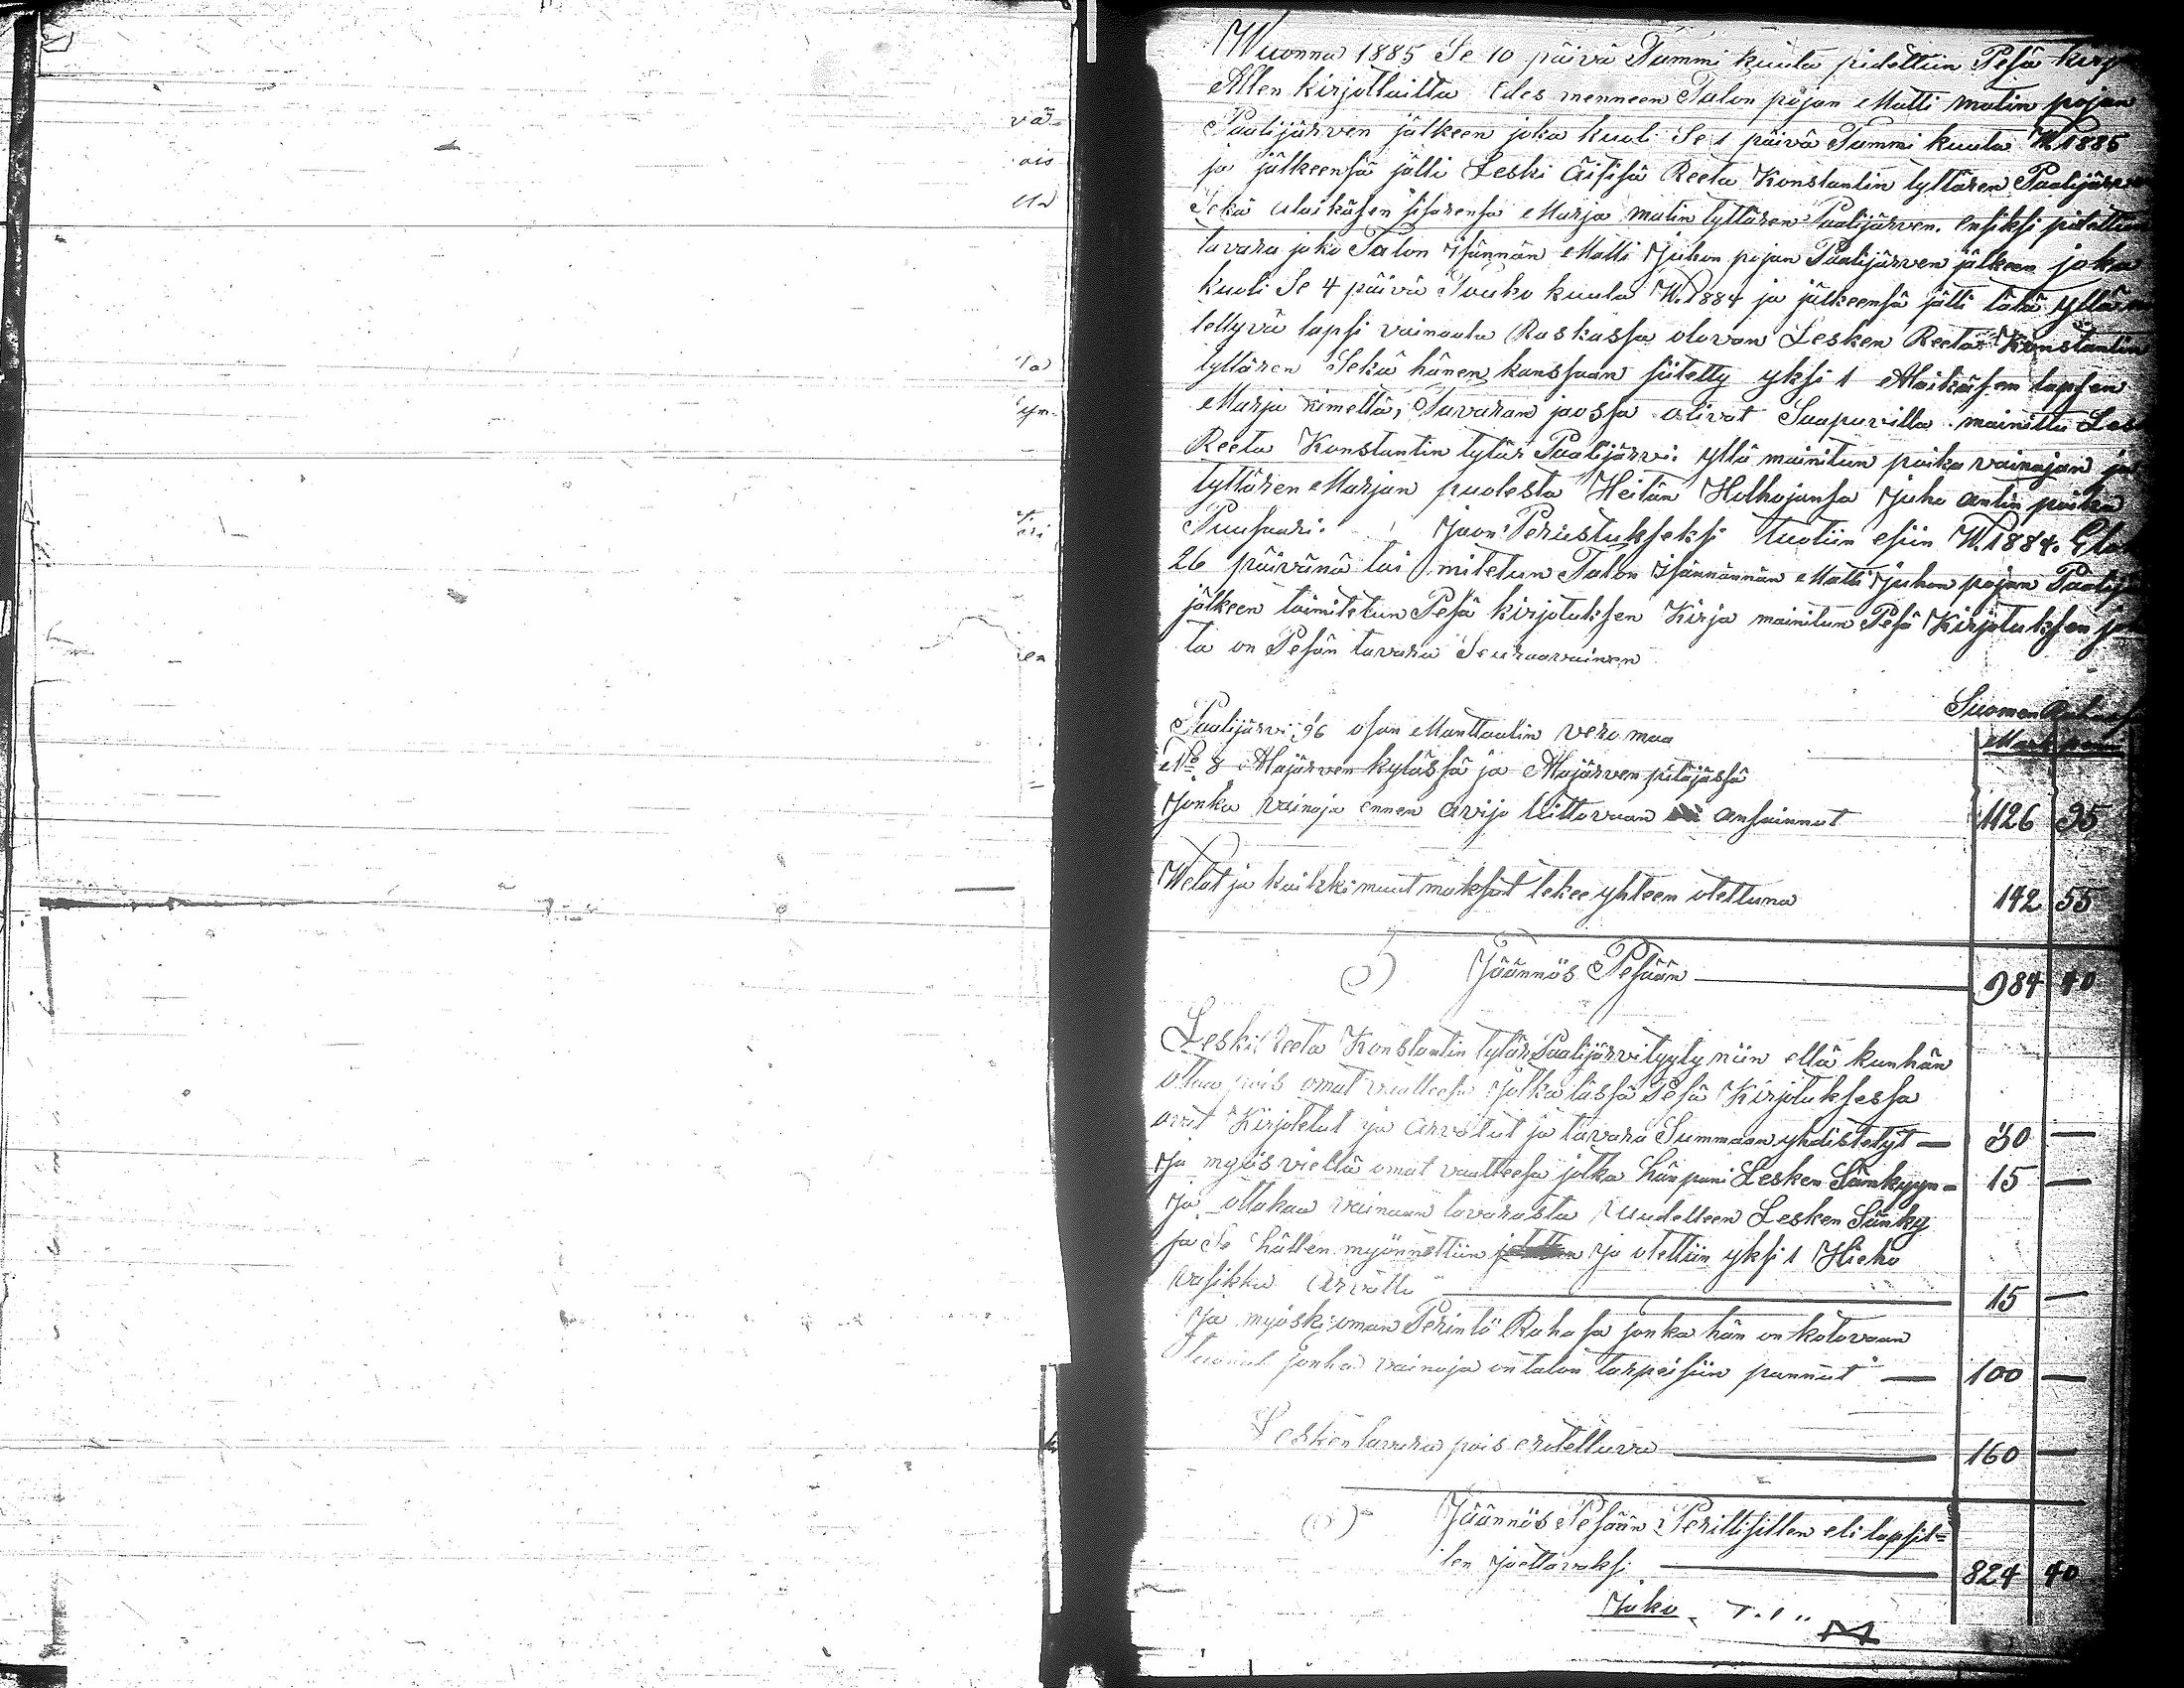 vä=
ois
Wuonna 1885 Se 10 päivä Tammi kuuta pidettiin Pesä kirj
Allen kirjottaitta Edes menneen Talon pojan Matti matin pojan
Paalijärven jälkeen joka kuoli Se 1 päivä Tammi kuuta W. 1885
ja jälkeensä jätti Leski Äitisä Reeta Konstantin tyttären Paalijärven
Sekä alaikäsen sisarensa Marja matin tyttären Paalijärven. Ensiksi pidettiin
tavara jako Talon Isännän Matti Juhon pojan Paalijärven jälkeen joka
kuoli Se 4 päivä Touko kuuta W. 1884 ja jälkeensä jätti tähä yllä
lettyvä lapsi vainaata Raskassa olovan Lesken Reeta Konstantin
tyttären Sekä hänen kanssaan siitetty yksi 1 Alaikäsen lapsen
Marja nimeltä; Tavaran jaossa olivat Saapuvilla mainittu Les
Reeta Konstantin tytär Paalijärvi. yllä mainitun poika vainajan ja
tyttären Marjan puolesta Heitän Holhojansa Juho antin poika
Puusaari. Jaon Perustukseksi tuotiin esiin W. 1884. Elo
26 päivänä toi mitetun Talon Isännännän Matti Juhon pojan Paalij
jälkeen toimitetun Pesä kirjotuksen Kirja mainitun Pesä Kirjotuksen jo
ta on Pesän tavara Seuraavainen
Suomen
Paalijärvi 96 osan Manttaalin vero maa
No 8 Alajärven kylässä ja Alajärven pitäjässä
Jonka vainaja ennen avijo liittovaan ansainnut 1126 95
Welat ja kaikki muut maksot tekee yhteen otettuna 142 55
S) Jäännös Pesään 984 40
Leski Reeta Konstantin tytär Paalijärvi tyyty niin että kunhän
ottaa pois omat vaatteesa jotka tässä Pesä Kirjotuksessa
ovat Kirjotetut ja arvotut ja tavara Summaan yhdistetyt — 30 —
Ja myös vieltä omat vaatteesa jotka hän pani Lesken Sänkyyn — 15 —
Ja ottakaa vainaan tavarasta Uudelleen Lesken Sänky
ja Se hällen myönnettiin ja otettiin yksi 1 Hieho
vasikka arvolta 15 —
Ja myöski oman Perintö Rahasa jonka hän on kotovaan
tuonut jonka vainaja on talon tarpeisiin pannut — 100 —
Lesken tavara pois eritettuva 160 —
S) Jäännös Pesään Perillisillen eli lapsil=
len jaettavaksi 824 40
Joko